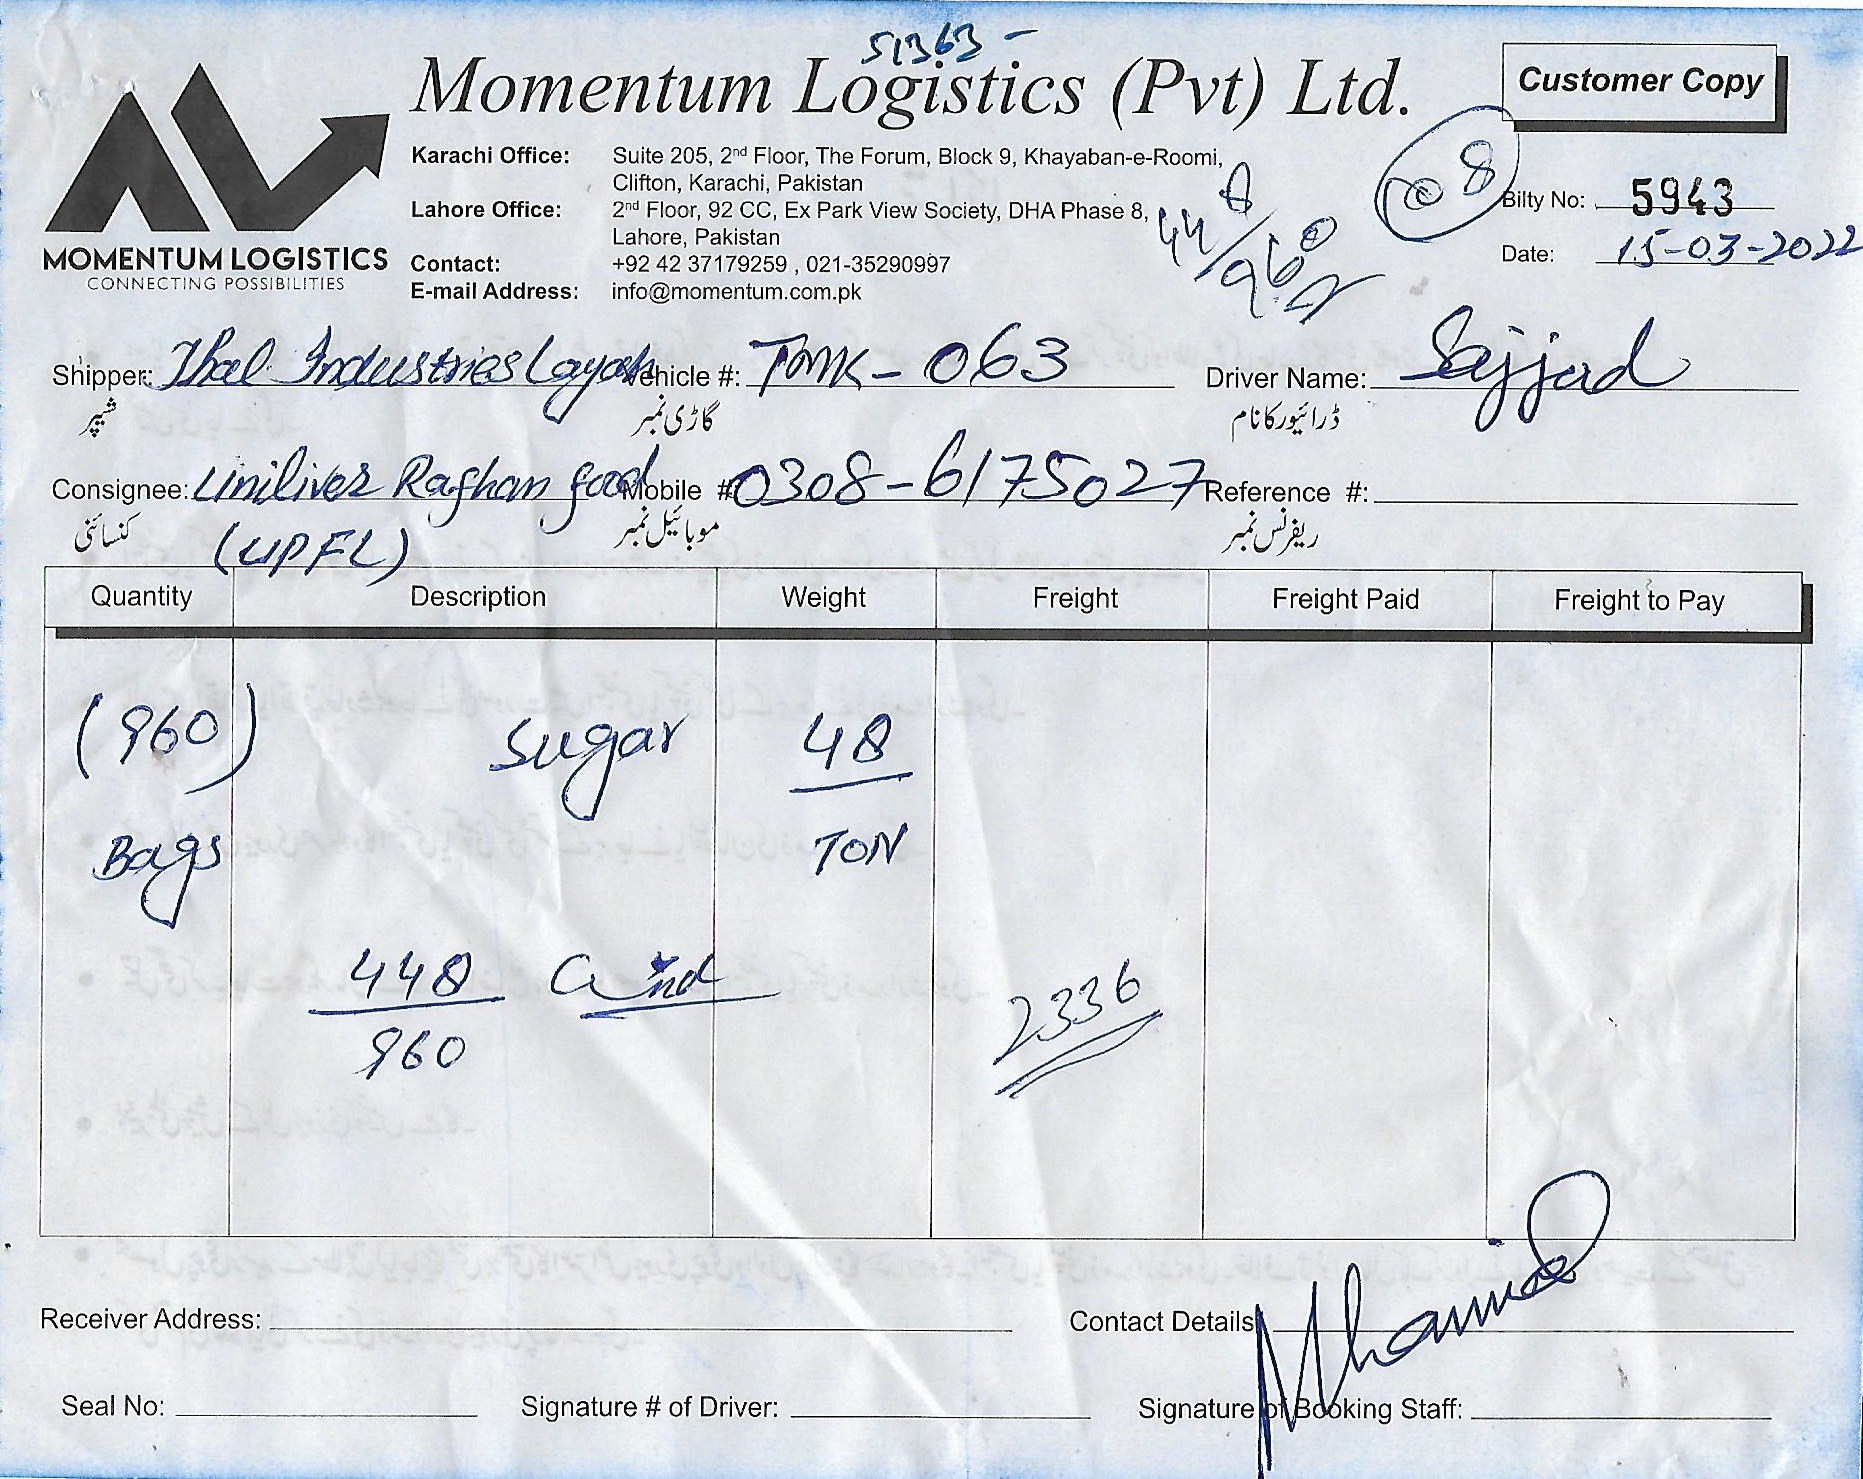 51363 -
Momentum Logistics (Pvt) Ltd.
Customer Copy
MOMENTUM LOGISTICS
CONNECTING POSSIBILITIES
Karachi Office: Suite 205, 2nd Floor, The Forum, Block 9, Khayaban-e-Roomi,
Clifton, Karachi, Pakistan
Lahore Office: 2nd Floor, 92 CC, Ex Park View Society, DHA Phase 8,
Lahore, Pakistan
Contact: +92 42 37179259 , 021-35290997
E-mail Address: info@momentum.com.pk
448/960
8
Bilty No: 5943
Date: 15-03-2022
Shipper: Thal Industries Layah Vehicle #: TMK - 063 Driver Name: Sajjad
شیپر گاڑی نمبر ڈرائیور کا نام
Consignee: Uniliver Rafhan food Mobile # 0308-6175027 Reference #:
کنسائنی موبائیل نمبر ریفرنس نمبر
(UPFL)
Quantity Description Weight Freight Freight Paid Freight to Pay
(960) Sugar 48
Bags TON
448
960
2336
Receiver Address: Contact Details
Seal No: Signature # of Driver: Signature of Booking Staff: